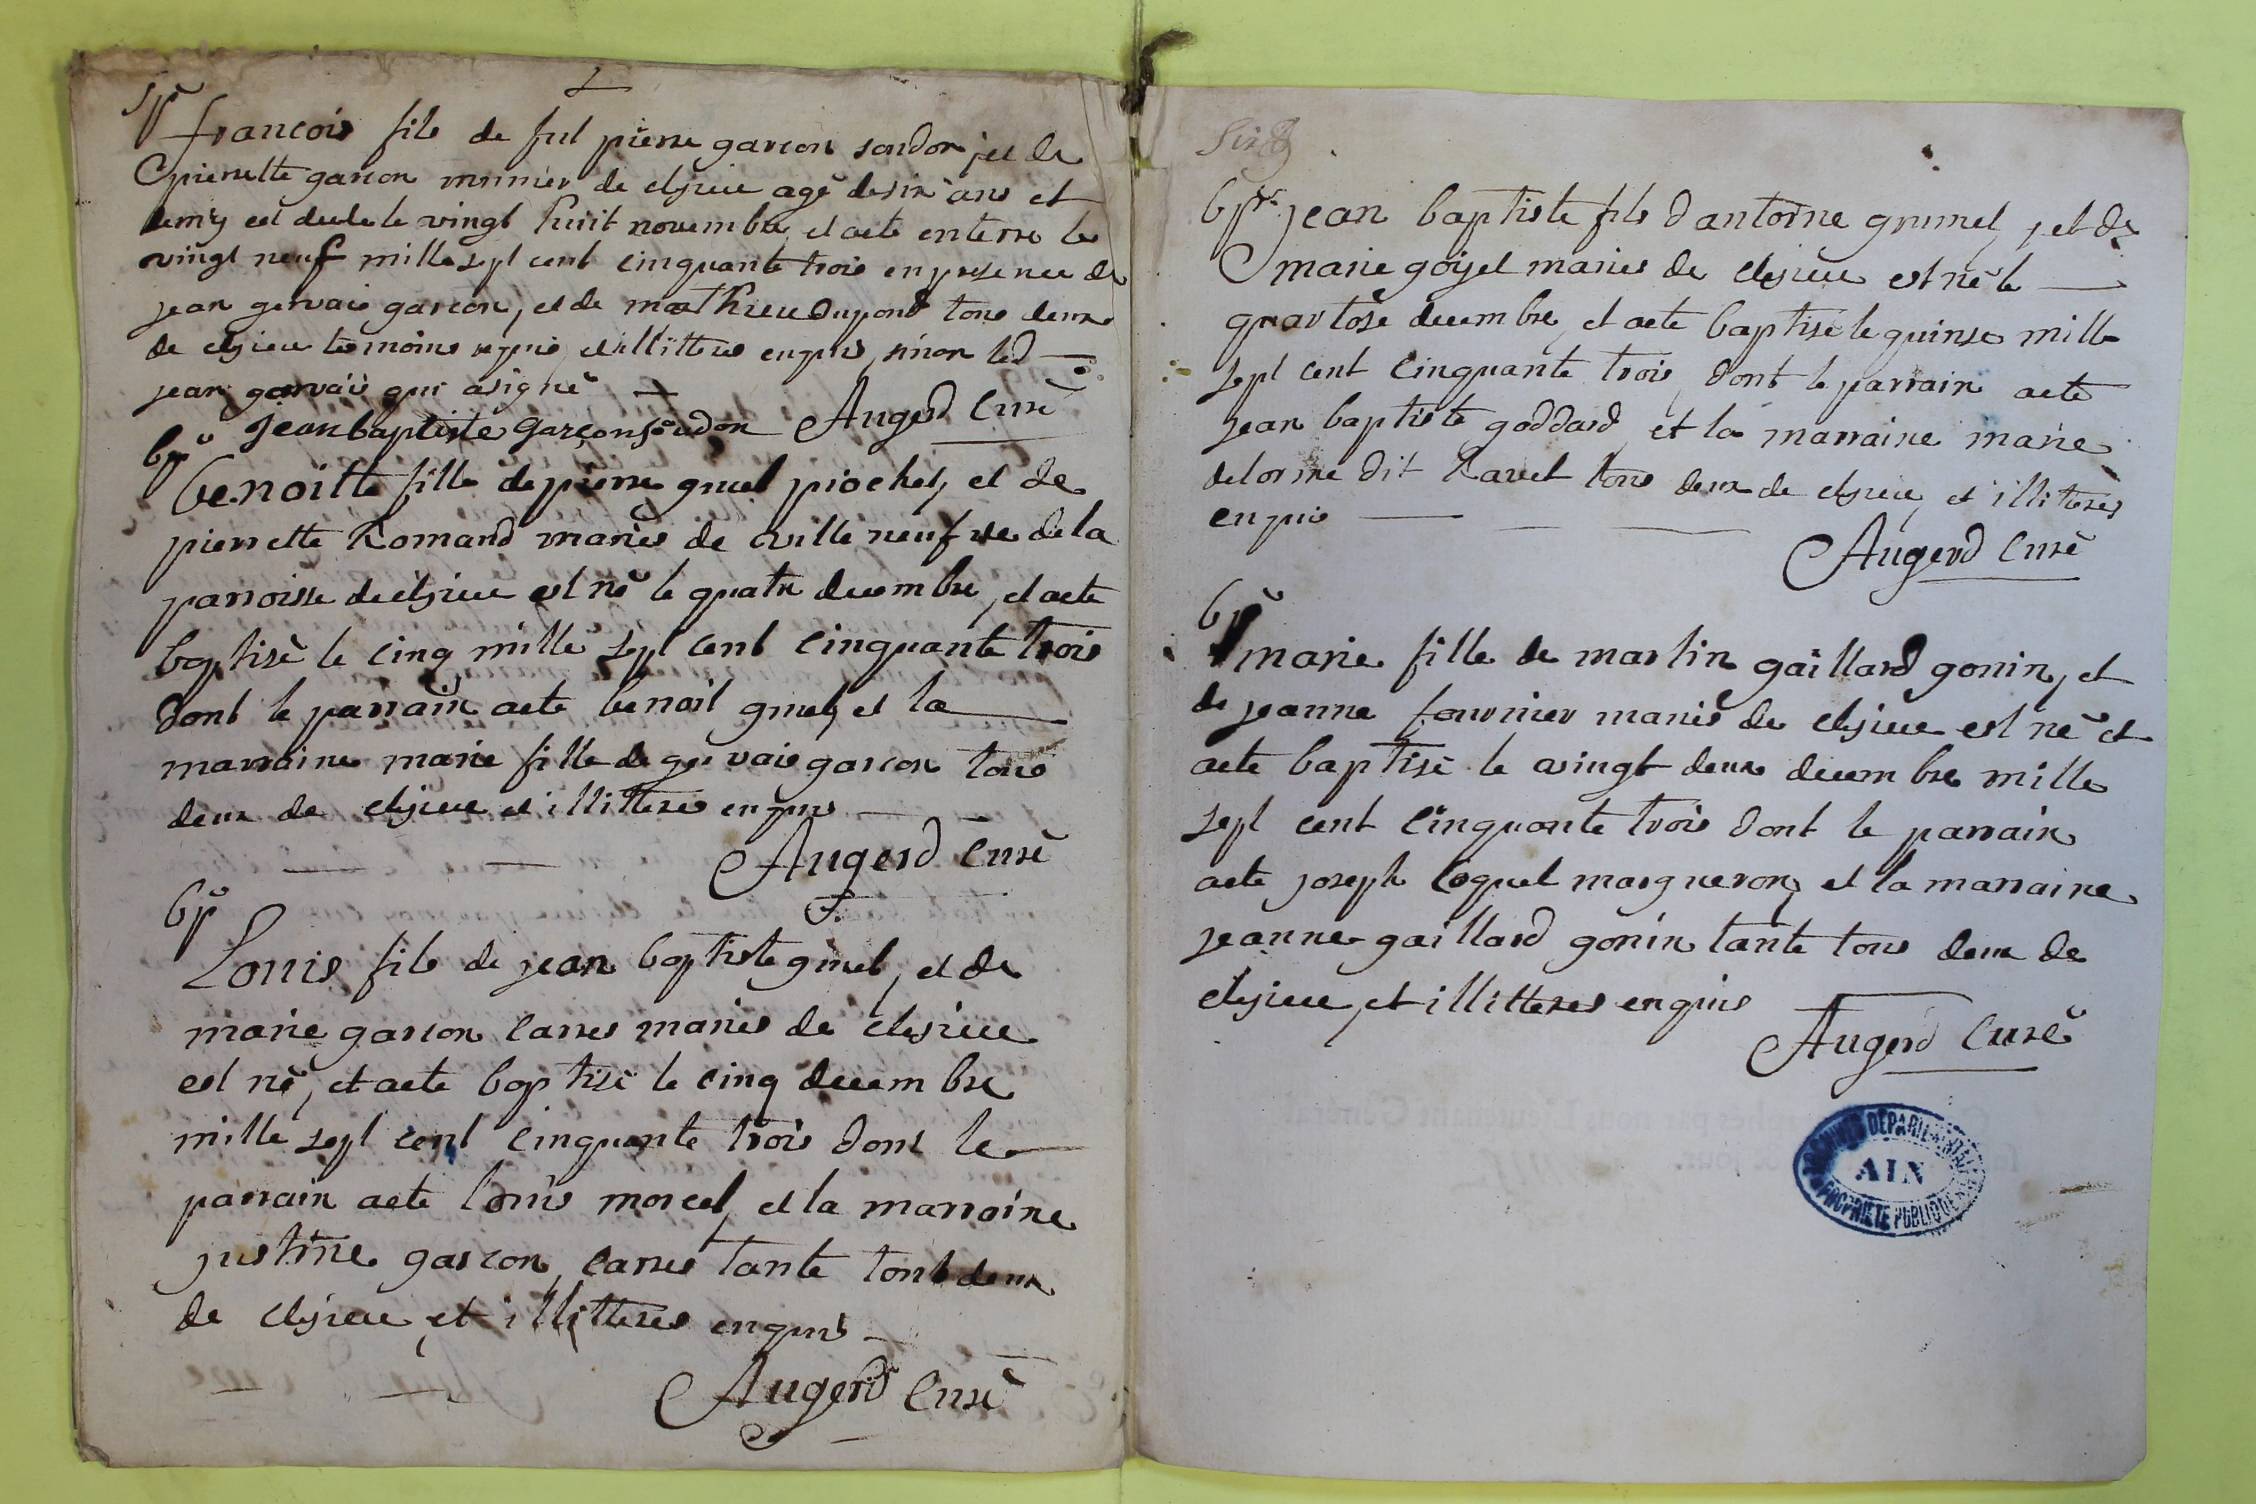 Spr
françois fils de fut pierre garcon soudon, et de
pierrette garcon munnier de clezieu agé de six ans et
demÿ est decede le vingt huit novembre, et a eté enterré le
vingt neuf mille sept cent cinquante trois en presence de
jean gervais garcon, et de mathieu dupond tous deux
de clezieu temoins requis, et illitteres enquis, sinon led
jean gervais qui a signé
Jean baptiste garçon soudon Augerd Curé
bpt
Benoitte fille de pierre gruel piochet, et de
pierrette Romand mariés de ville neufve de la
parroisse de clezieu est né le quatre decembre, et a eté
baptisé le cinq mille sept cent cinquante trois
dont le parrain a eté benoit gruel, et la
marraine marie fille de gervais garcon tous
deux de clezieu et illitteres enquis
Augerd Curé
bpt
Louis fils de jean baptiste gruel, et de
marie garcon carres mariés de clezieu
est né, et a eté baptisé le cinq decembre
mille sept cent cinquante trois dont le
parrain a eté louis morcel, et la marraine
justine garcon carres tante tout deux
de clezieu et illitteres enquis
Augerd Curé
Six
bpt jean baptiste fils d'antoine grumel, et de
marie goyet mariés de clezieu est né le
quartose decembre, et a eté baptisé le quinse mille
sept cent cinquante trois, dont le parrain a eté
jean baptiste goddard, et la marraine marie
delorme dit Ravet tous deux de clezieu, et illitteres
enquis
Augerd Curé
bpt
marie fille de martin gaillard gonin, et
de jeanne fournier mariés de clezieu est né et
a eté baptisé le vingt deux decembre mille
sept cent cinquante trois dont le parrain
a eté joseph Coquet maigneron, et la marraine
jeanne gaillard gonin tante tous deux de
clezieu, et illitteres enquis
Augerd Curé
ARCHIVES DÉPARTEMENTALES
AIN
PROPRIÉTÉ PUBLIQUE